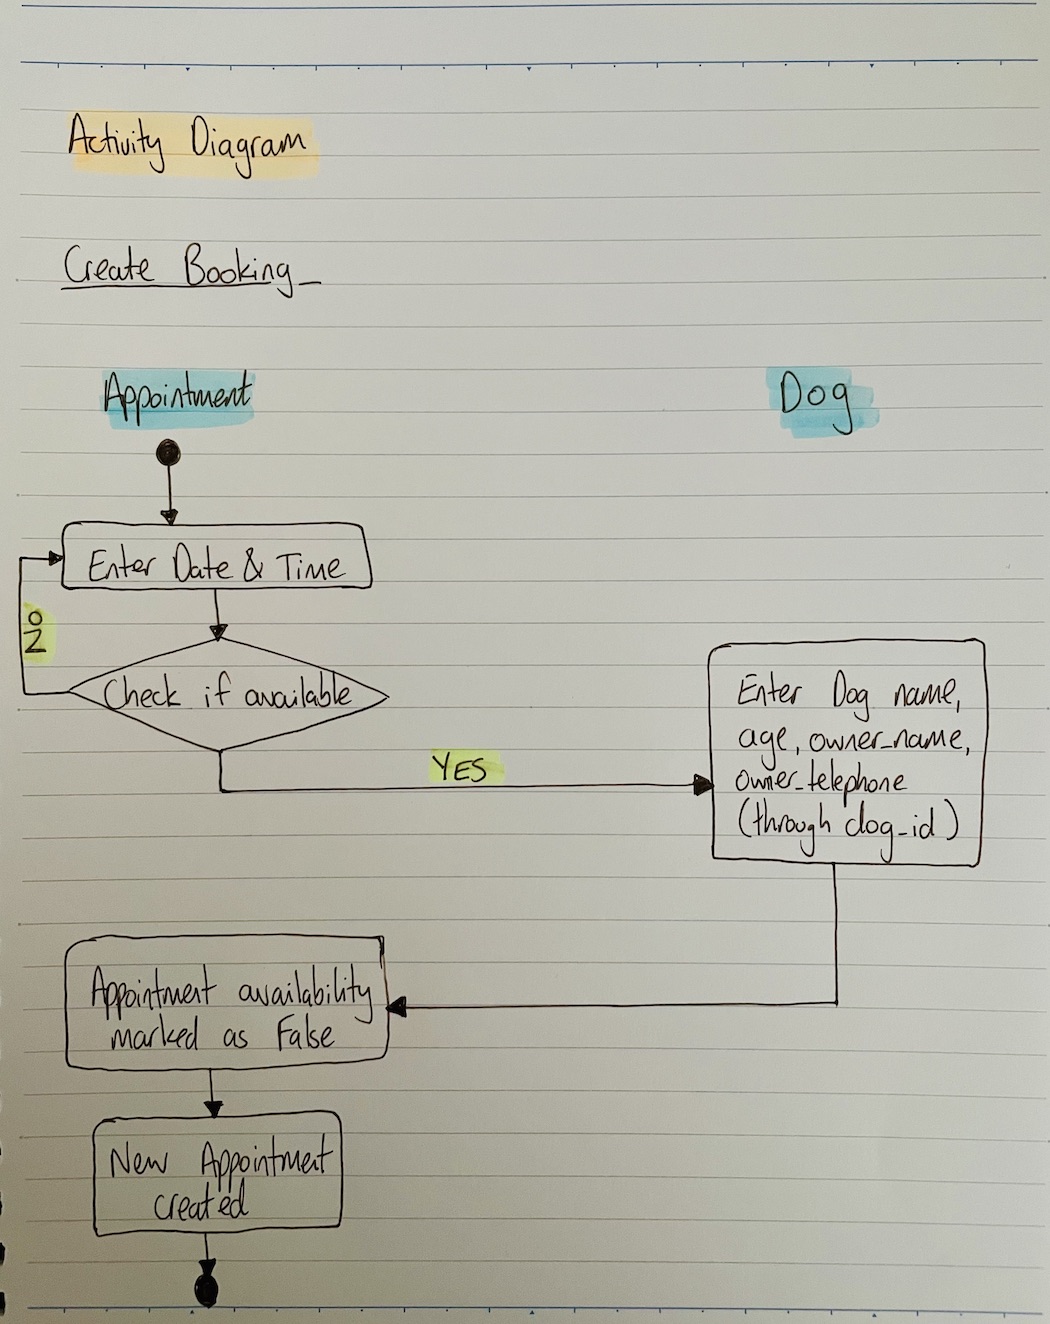 Activity Diagram
Create Booking
Appointment
Dog
Enter Date & Time
NO
Check if available
YES
Enter Dog name,
age, owner_name,
owner_telephone
(through dog_id)
Appointment availability
marked as False
New Appointment
created